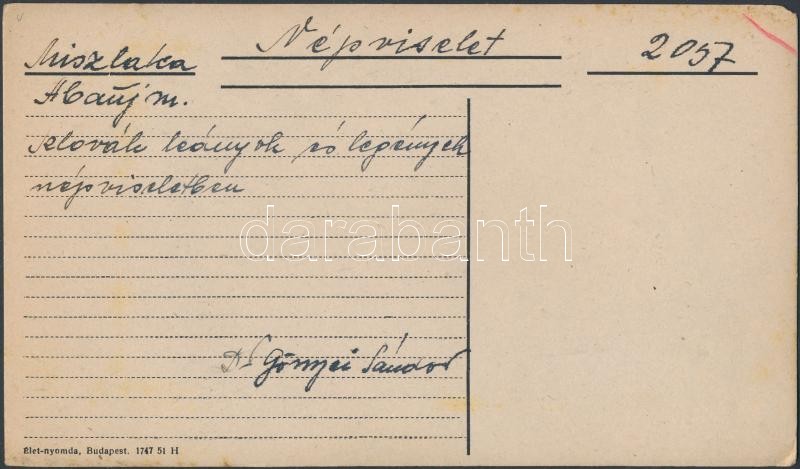 Népviselet
2057
Miszlóka
Abaúj m.
szlovák leányok és legények
népviseletben
darabanth
Dr Gönyei Sándor
Élet-nyomda, Budapest. 1747 51 H